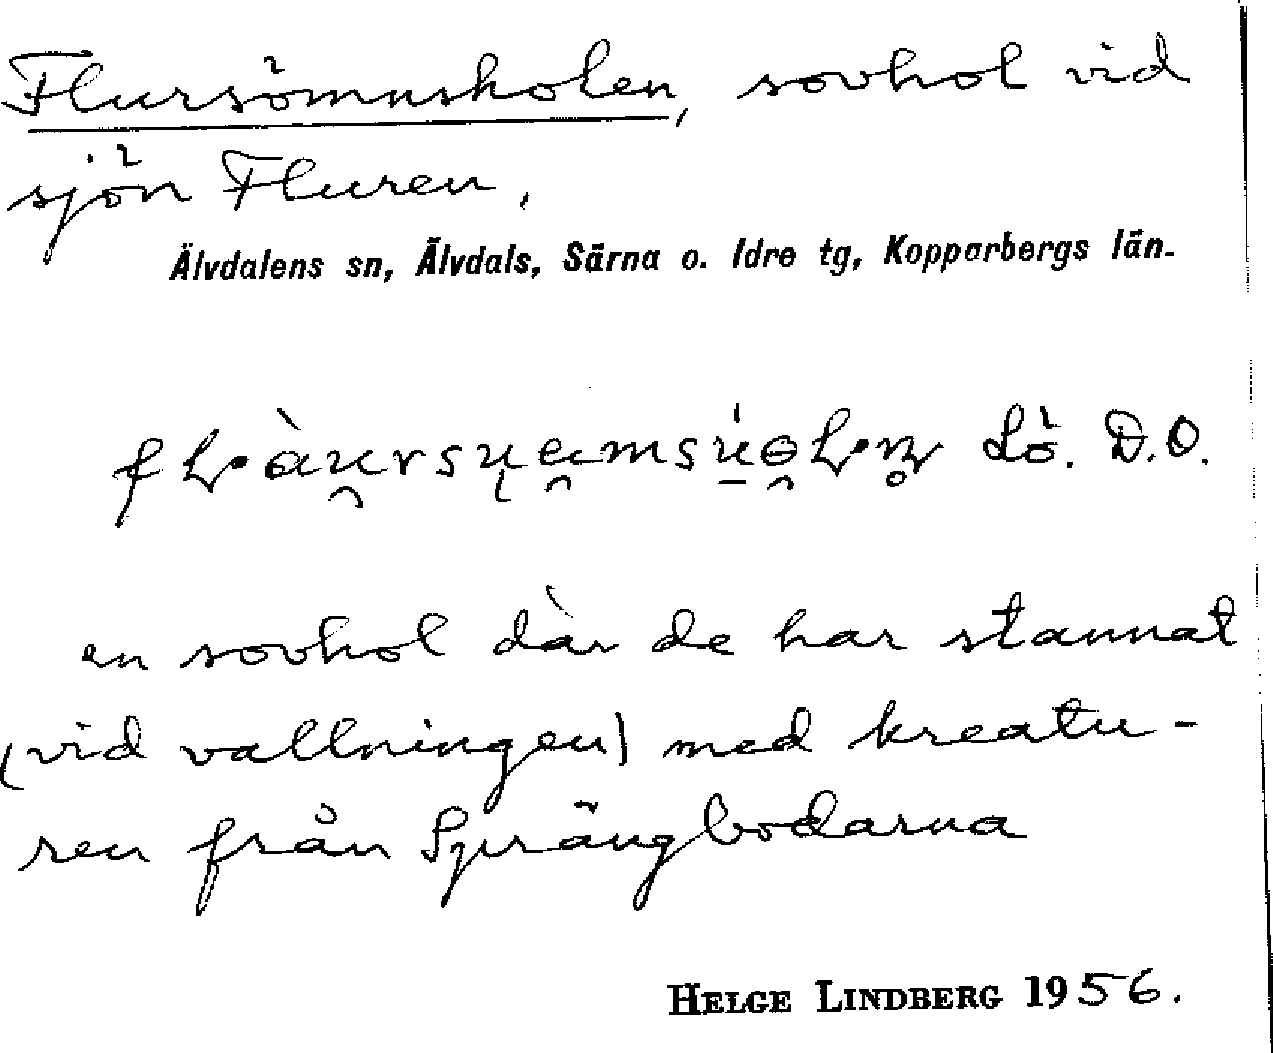 Flursömnskolen, sovhol vid
sjön Fluren.
Älvdalens sn, Älvdals, Särna o. Idre tg, Kopparbergs län.
lö. D.O.
en sovhol där de har stannat
(vid vallningen) med kreatu-
ren från Sprängbodarna
HELGE LINDBERG 1956.